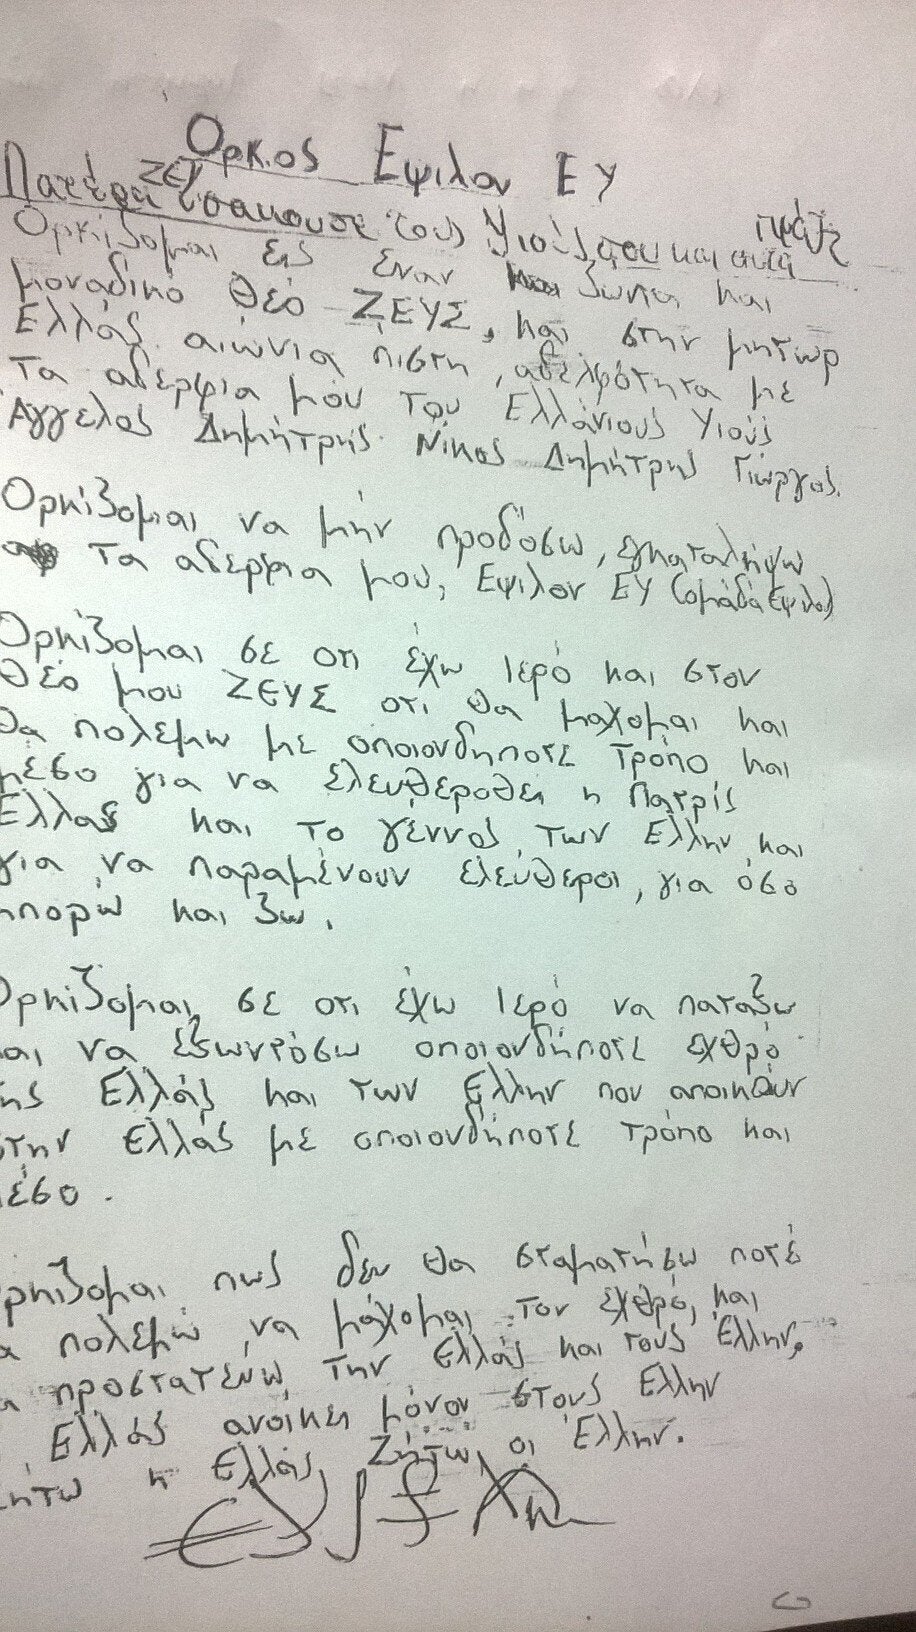 Ορκος Εψιλον ΕΥ
Πατέρα ΖΕΥ εισακουσε τους Υιούς σου και αυτά πράξε
Ορκίζομαι εις έναν και ζωντα και
μοναδικό θεό ΖΕΥΣ, και στην μητωρ
Ελλάς αιώνια πιστη, αδελφότητα με
Τα αδερφια μου του Ελλάνιους Υιούς
Άγγελος Δημήτρης Νίκος Δημήτρης Γιώργος.
Ορκίζομαι να μήν προδόσω, εγκαταλήψω
τα αδερφια μου, Εψιλον ΕΥ (ομάδα Εψιλον)
Ορκίζομαι σε οτι έχω Ιερό και στον
Θεό μου ΖΕΥΣ οτι θα μαχομαι και
θα πολεμω με οποιονδηποτε Τρόπο και
μέσο για να ελευθεροθει η Πατρίς
Ελλας και το γέννος των Ελλην και
για να παραμένουν ελεύθεροι, για όσο
μπορώ και ζω.
Ορκίζομαι σε οτι έχω Ιερό να παταξω
αι να εξωντόσω οποιονδήποτε εχθρό
ης Ελλάς και των Ελλην που αποικούν
στην Ελλάς με οποιονδήποτε τρόπο και
μέσο.
ρκιζομαι πως δεν θα σταματήσω ποτέ
α πολεμώ να μάχομαι τον εχθρό, και
α προστατευω την Ελλάς και τους Έλλην,
Ελλάς ανοικει μόνον στους Ελλην
ήτω η Ελλάς Ζήτω οι Έλλην.